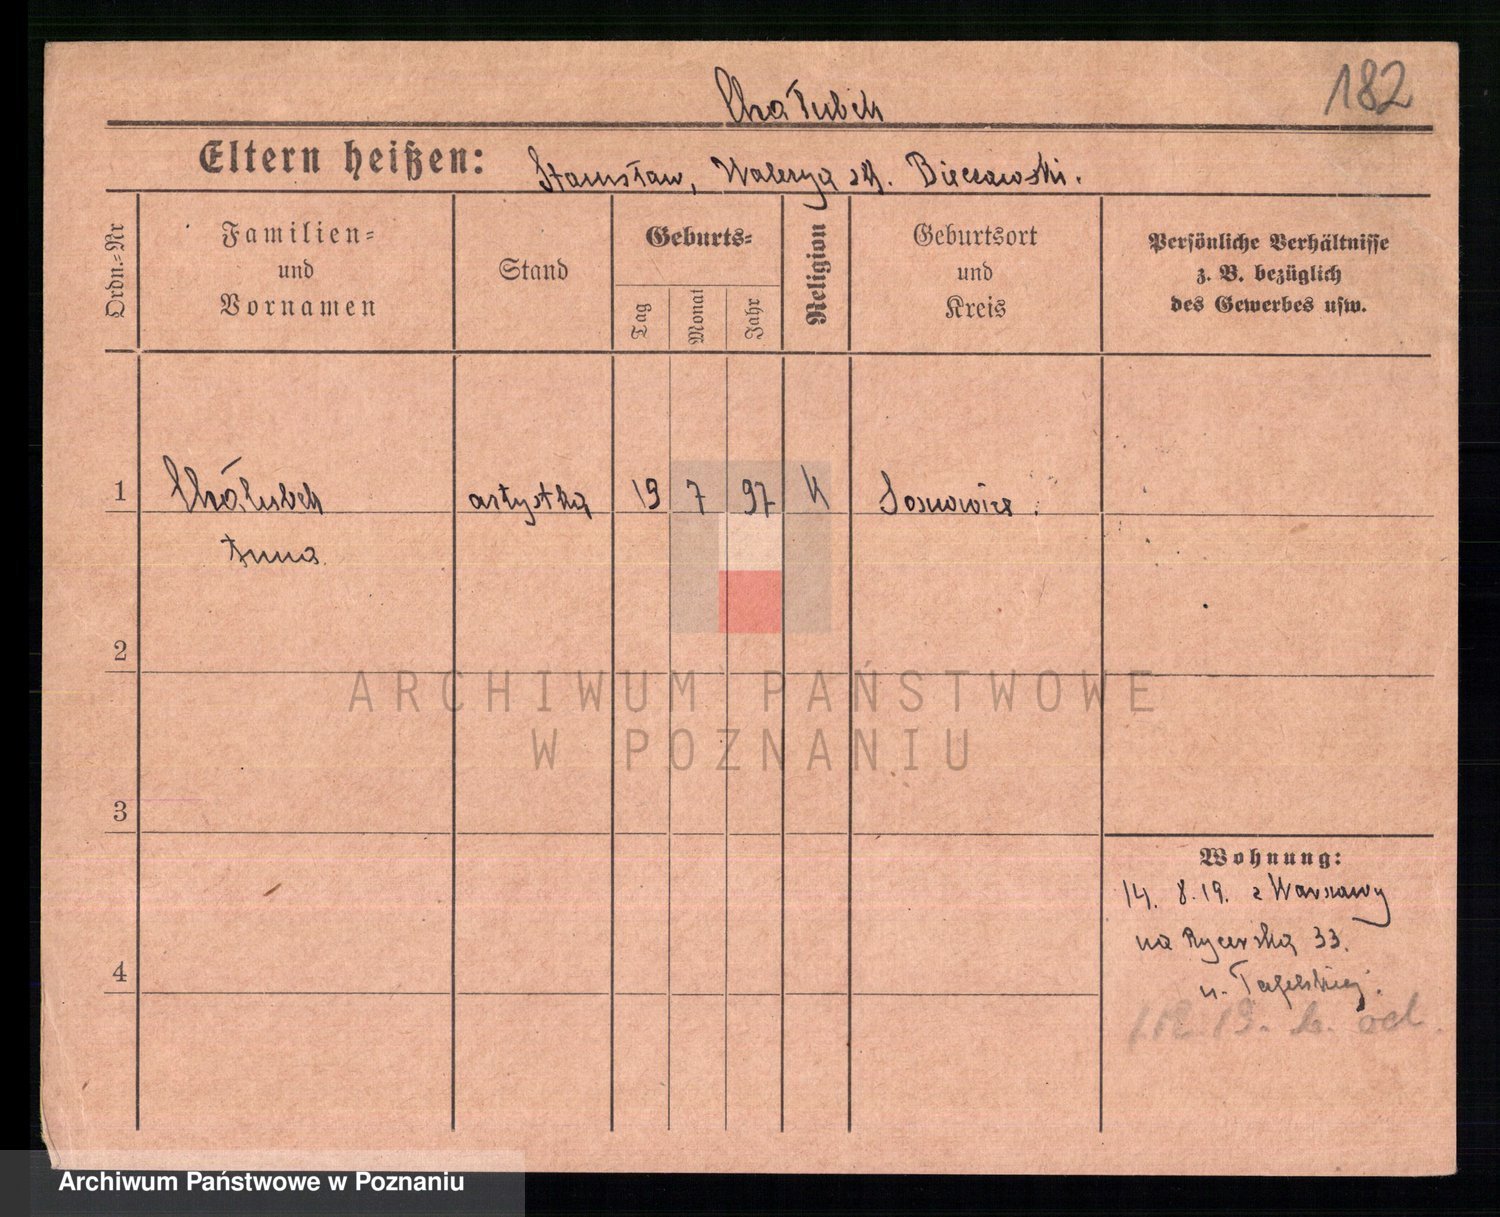 182
Chałubek
Eltern heißen: Stanisław, Walerya
Ordn.-Nr
Familien-
und
Vornamen
Stand
Geburts-
Tag
Monat
Jahr
Religion
Geburtsort
und
Kreis
Persönliche Verhältnisse
z. B. bezüglich
des Gewerbes usw.
1 Chałubek artystka 19 7 97 K Sosnowice
Anna
2
ARCHIWUM PAŃSTWOWE
W POZNANIU
3
Wohnung:
14. 8. 19. z Warszawy
na Rycerską 33.
4
Archiwum Państwowe w Poznaniu